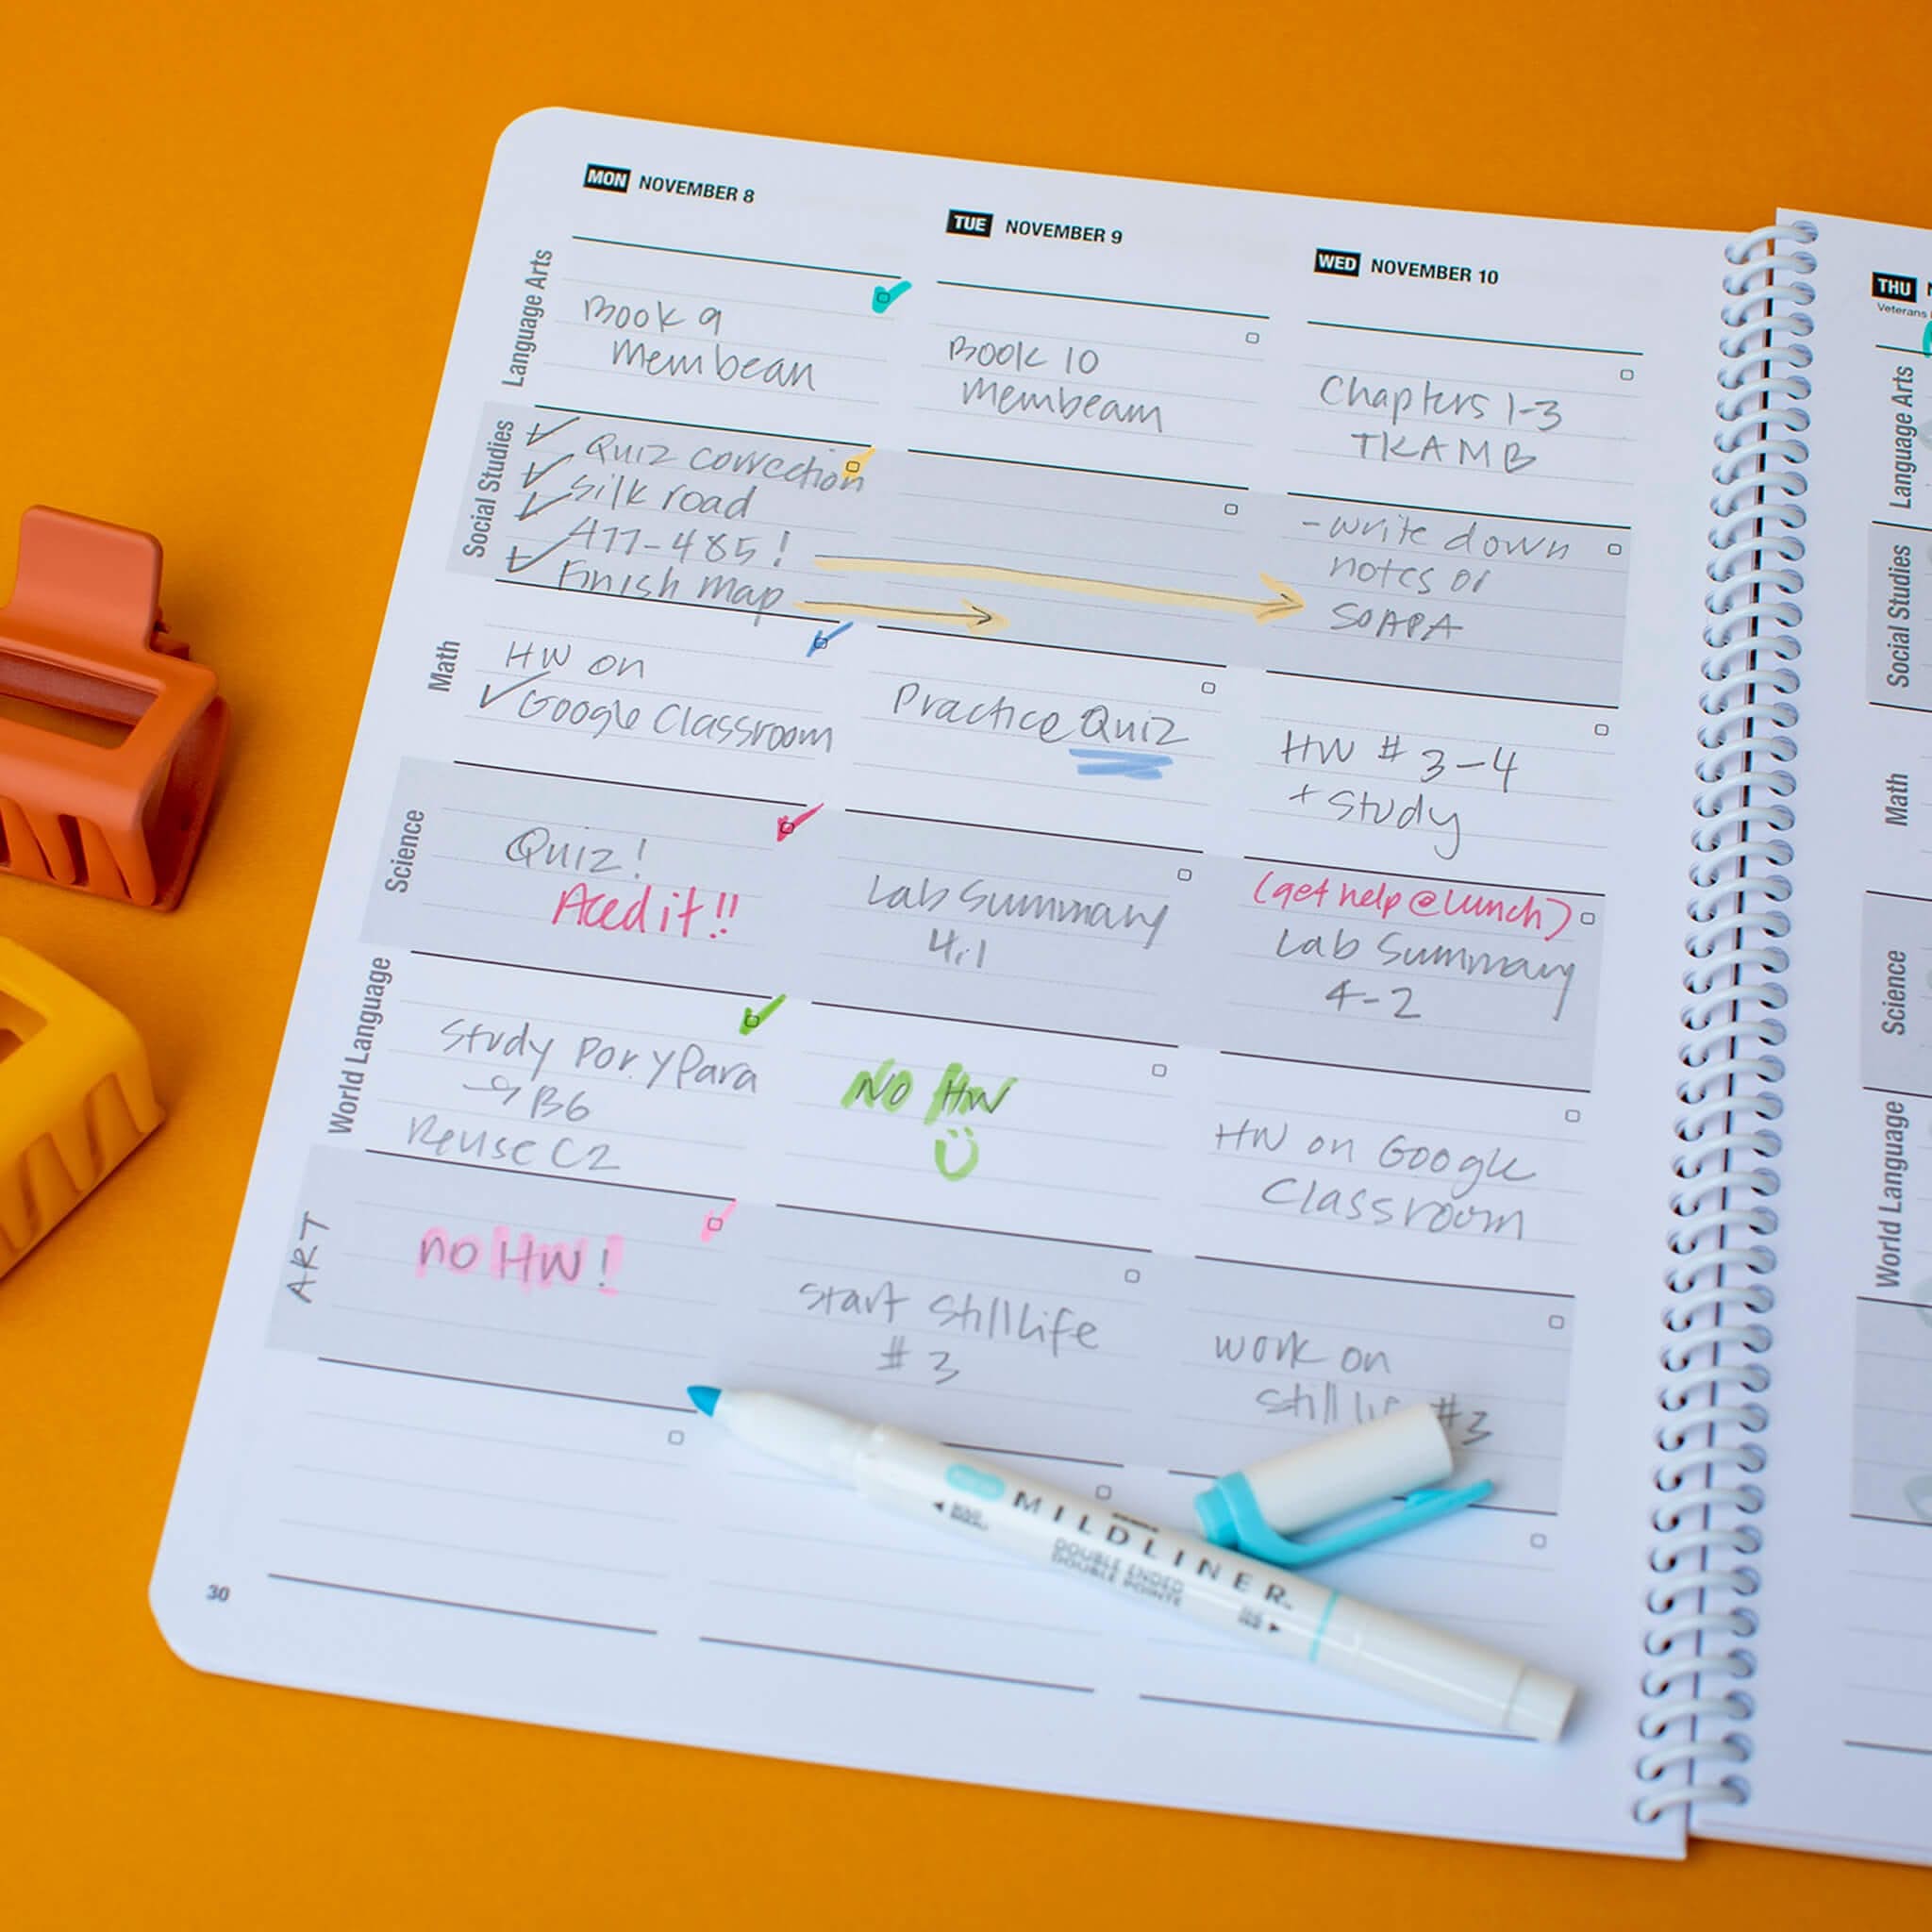 MON NOVEMBER 8
TUE NOVEMBER 9
WED NOVEMBER 10
THU
Veterans
Language Arts
Book 9
Membean
Book 10
Membeam
Chapters 1-3
TKAMB
Language Arts
Social Studies
Quiz correction
Silk road
477-485!
Finish map
-write down
notes or
SOAPA
Social Studies
Math
HW on
Google Classroom
Practice Quiz
HW # 3-4
+ Study
Math
Science
Quiz!
Aced it!!
Lab Summary
4.1
(get help @ lunch)
Lab Summary
4-2
Science
World Language
Study Por y Para
→ B6
Reuse C2
NO HW
HW on Google
Classroom
World Language
ART
no HW!
Start Still Life
# 3
work on
still #3
MILDLINER
DOUBLE ENDED
DOUBLE POINTE
30